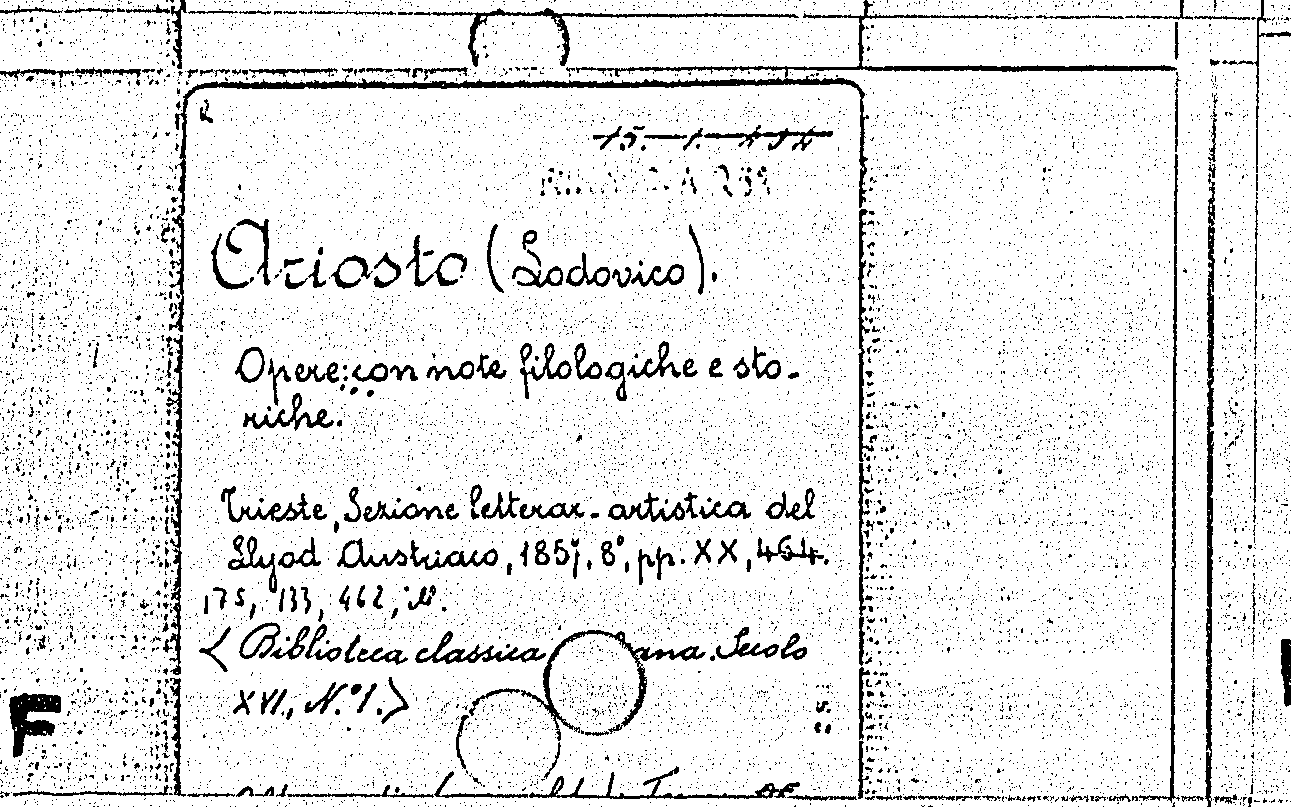 R
15. 1. A 9 A
Ariosto (Lodovico).
Opere: con note filologiche e sto-
riche.
Trieste, Sezione letterar.-artistica del
Llyod Austriaco, 1857, 8°, pp. XX, 464.
175, 133, 462,
< Biblioteca classica Secolo
XVI, N.° 1.>
F